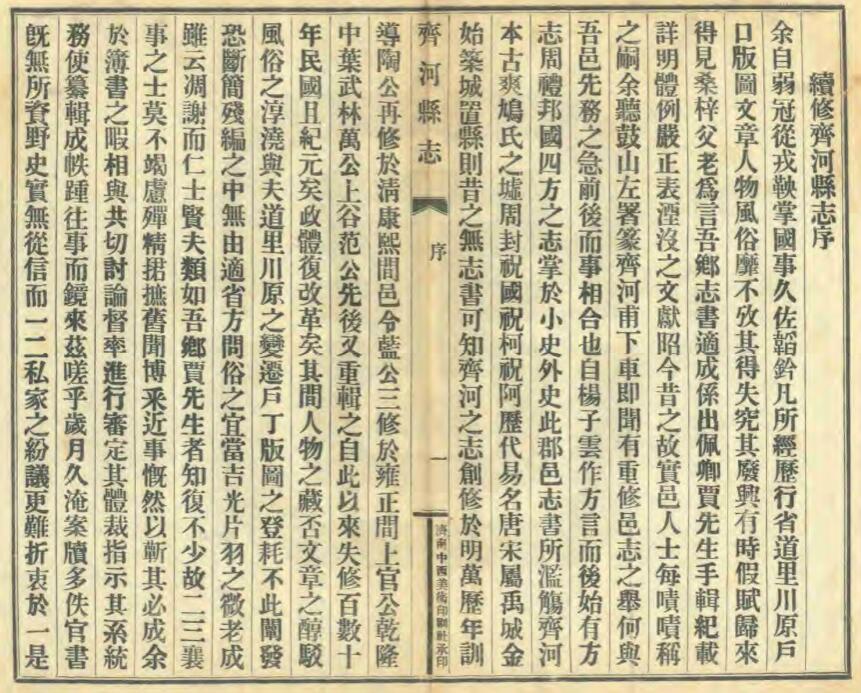 續修齊河縣志序
余自弱冠從戎鞅掌國事久佐韜鈐凡所經歷行省道里川原戶
口版圖文章人物風俗靡不攷其得失究其廢興有時假賦歸來
得見桑梓父老爲言吾鄉志書適成係出佩卿賈先生手輯紀載
詳明體例嚴正表湮沒之文獻昭今昔之故實邑人士每嘖嘖稱
之嗣余聽鼓山左署篆齊河甫下車即聞有重修邑志之舉何與
吾邑先務之急前後而事相合也自楊子雲作方言而後始有方
志周禮邦國四方之志掌於小史外史此郡邑志書所濫觴齊河
本古爽鳩氏之墟周封祝國祝柯祝阿歷代易名唐宋屬禹城金
始築城置縣則昔之無志書可知齊河之志創修於明萬歷年訓
齊河縣志
序
一
濟南中西美術印刷社承印
導陶公再修於淸康熙間邑令藍公三修於雍正間上官公乾隆
中葉武林萬公上谷范公先後又重輯之自此以來失修百數十
年民國且紀元矣政體復改革矣其間人物之藏否文章之醇駁
風俗之淳澆與夫道里川原之變遷戶丁版圖之登耗不此闡發
恐斷簡殘編之中無由適省方問俗之宜當吉光片羽之微老成
雖云凋謝而仁士賢夫類如吾鄉賈先生者知復不少故二三襄
事之士莫不竭慮殫精捃摭舊聞博釆近事慨然以蘄其必成余
於簿書之暇相與共切討論督率進行審定其體裁指示其系統
務使纂輯成帙踵往事而鏡來茲嗟乎歲月久淹案牘多佚官書
旣無所資野史實無從信而一二私家之紛議更難折衷於一是